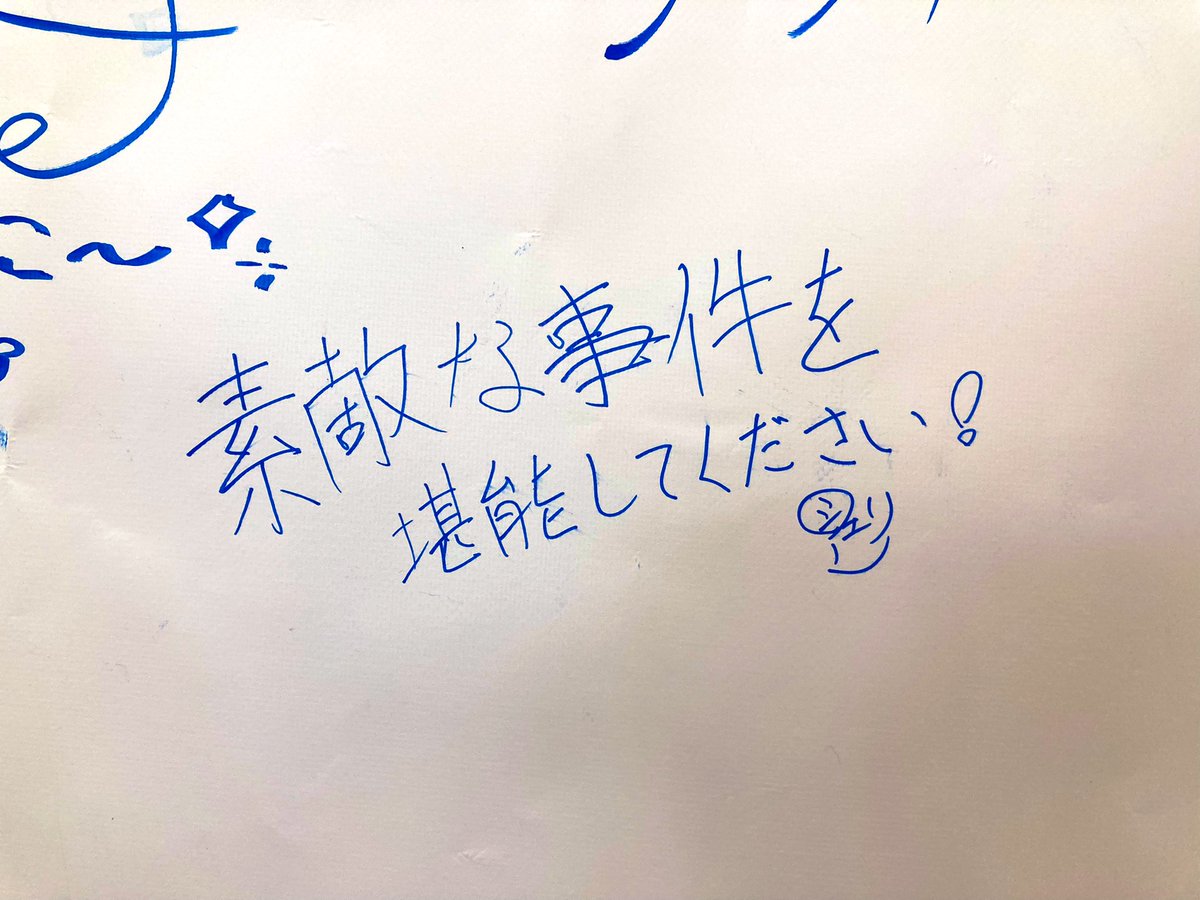 素敵な事件を
堪能してください!